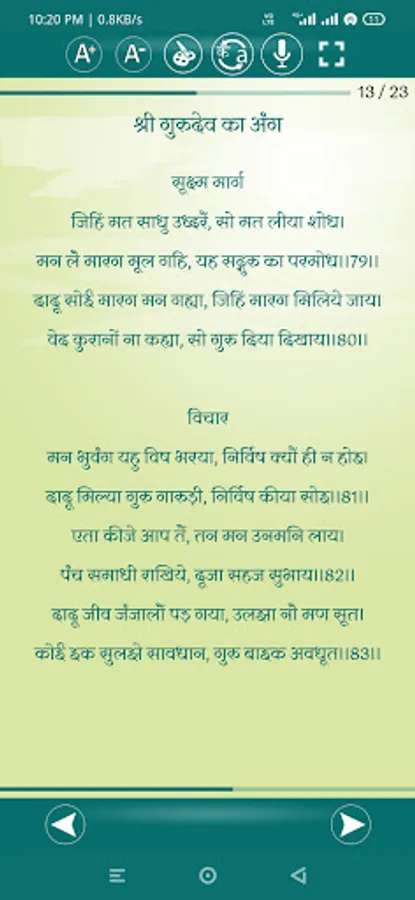 10:20 PM | 0.8KB/s
Vo LTE 4G+ 11
A+ A- क a
13 / 23
श्री गुरुदेव का अंग
सूक्ष्म मार्ग
जिहिं मत साधु उध्दरैं, सो मत लीया शोध।
मन लै मारग मूल गहि, यह सद्गुरु का परमोध।।79।।
दादू सोई मारग मन गह्या, जिहिं मारग मिलिये जाय।
वेद कुरानों ना कह्या, सो गुरु दिया दिखाय।।80।।
विचार
मन भुवंग यहु विष भरया, निर्विष क्यौं ही न होइ।
दादू मिल्या गुरु गारुड़ी, निर्विष कीया सोइ।।81।।
एता कीजे आप तैं, तन मन उनमनि लाय।
पंच समाधी राखिये, दूजा सहज सुभाय।।82।।
दादू जीव जंजालौं पड़ गया, उलझा नौ मण सूत।
कोई इक सुलझे सावधान, गुरु बाइक अवधूत।।83।।